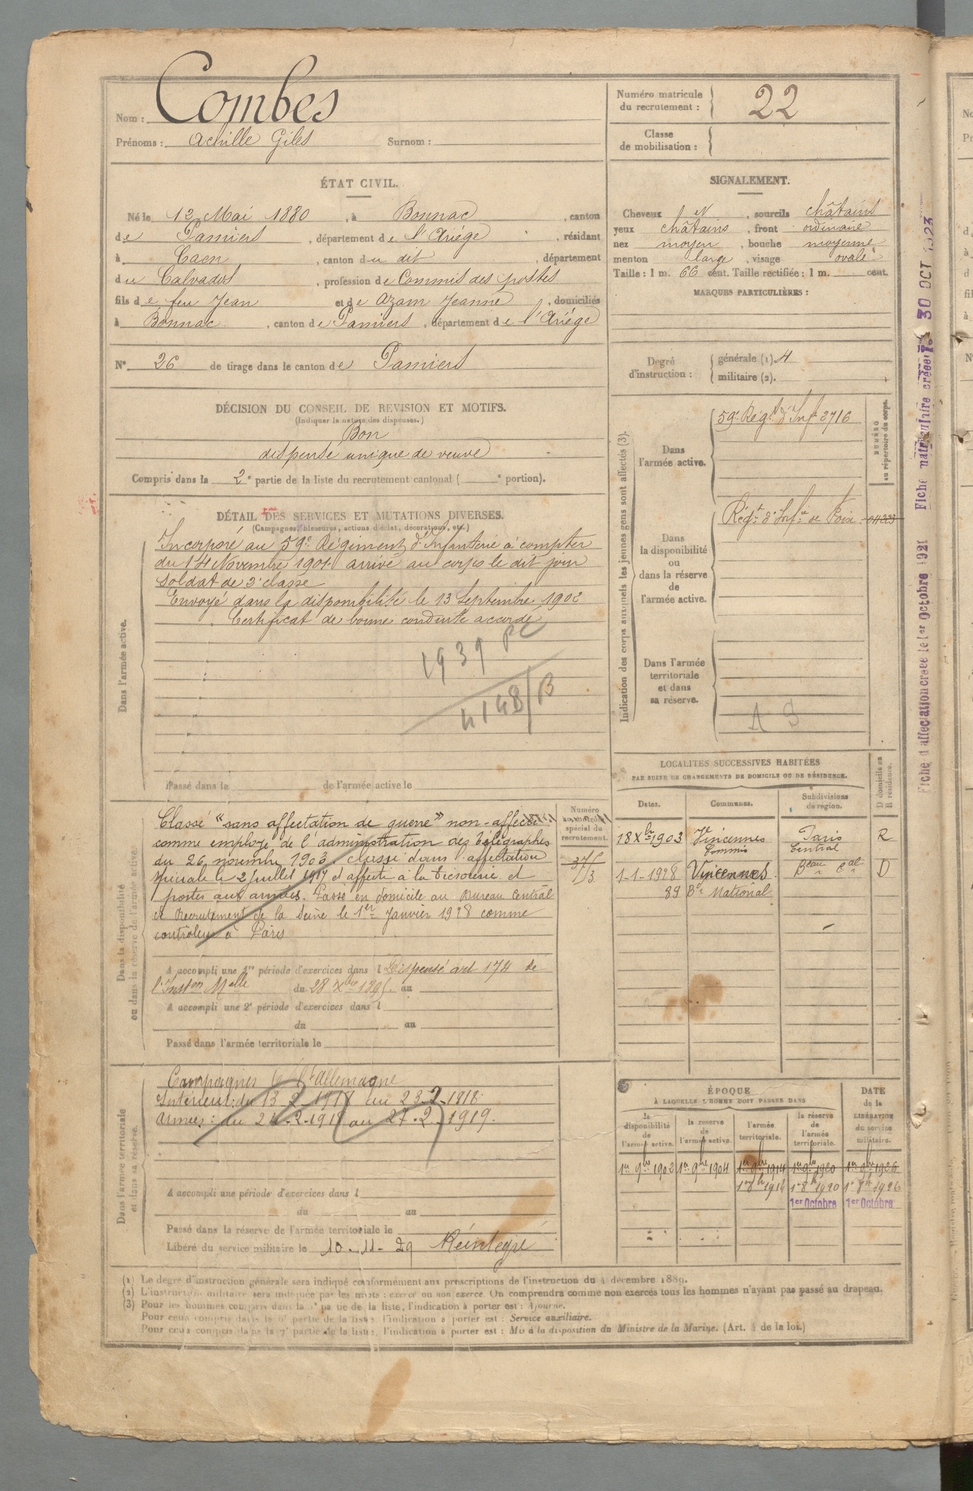 Nom : Combes
Prénoms : Achille Giles Surnom :
Numéro matricule du recrutement : 22
Classe de mobilisation :
ÉTAT CIVIL.
Né le 12 Mai 1880, à Bonnac, canton
de Pamiers, département de l'Ariége, résidant
à Caen, canton du dit, département
du Calvados, profession de Commis des postes
fils de feu Jean et de Azam Jeanne, domiciliés
à Bonnac, canton de Pamiers, département de l'Ariége
N° 26 de tirage dans le canton de Pamiers
SIGNALEMENT.
Cheveux , sourcils châtains
yeux châtains, front ordinaire
nez moyen, bouche moyenne
menton large, visage ovale
Taille : 1 m. 66 cent. Taille rectifiée : 1 m. cent.
MARQUES PARTICULIÈRES :
Degré d'instruction : générale (1). 4
militaire (2).
DÉCISION DU CONSEIL DE REVISION ET MOTIFS.
(Indiquer la nature des dispenses.)
Bon
dispense unique de veuve
Compris dans la 2e partie de la liste du recrutement cantonal ( e portion).
DÉTAIL DES SERVICES ET MUTATIONS DIVERSES.
(Campagnes, blessures, actions d'éclat, décorations, etc.)
Dans l'armée active.
Incorporé au 59e Régiment d'Infanterie à compter
du 14 Novembre 1901 arrivé au corps le dit jour
Soldat de 2e classe
Envoyé dans la disponibilité le 13 Septembre 1902
Certificat de bonne conduite accordé
1939
4148/B
Passé dans la de l'armée active le
Indication des corps auxquels les jeunes gens sont affectés (3).
NUMÉRO au répertoire du corps.
Dans l'armée active.
59e Régt d'Inf 2716
Dans la disponibilité ou dans la réserve de l'armée active.
Régt d'Infie de Foix
Dans l'armée territoriale et dans sa réserve.
Fiche d'affectation créée le 1er Octobre 1921 Fiche matriculaire créée le 30 OCT 1923
LOCALITÉS SUCCESSIVES HABITÉES
PAR SUITE DE CHANGEMENTS DE DOMICILE OU DE RÉSIDENCE.
Dates. Communes. Subdivisions de région. D domicile ou R résidence.
18 Xbre 1903 Vincennes Commis Paris Central R
1-1-1928 Vincennes Beau Cal D
89 Bd National
Dans la disponibilité ou dans la réserve de l'armée active
Numéro spécial du recrutement.
Classé "sans affectation de guerre" non-affecté
comme employé de l'administration des télégraphes
du 26 novembre 1903, classé dans l'affectation
spéciale le 2 Juillet 1917 et affecté à la trésorerie et
postes aux armées. Passé en domicile au Bureau Central
de Recrutement de la Seine le 1er Janvier 1928 comme
contrôleur à Paris
A accompli une 1re période d'exercices dans l Dispensé art 174 de
l'Inston Melle du 28 Xbre 1895 au
A accompli une 2e période d'exercices dans l
du au
Passé dans l'armée territoriale le
Dans l'armée territoriale et dans sa réserve.
Campagnes c. l'Allemagne
Intérieur : du 13-2-1918 au 23-2-1918
Armées : du 24-2-1918 au 27-2-1919.
A accompli une période d'exercices dans l
du au
Passé dans la réserve de l'armée territoriale le
Libéré du service militaire le 10-11-29 Réintégré
ÉPOQUE
A LAQUELLE L'HOMME DOIT PASSER DANS
la disponibilité de l'armée active. la réserve de l'armée active. l'armée territoriale. la réserve de l'armée territoriale. DATE de la LIBÉRATION du service militaire.
1er 9bre 1902 1er 9bre 1904 1er 9bre 1914 1er 9bre 1920 1er 9bre 1926
1er 8bre 1914 1er 8bre 1920 1er 8bre 1926
1er Octobre 1er Octobre
(1) Le degré d'instruction générale sera indiqué conformément aux prescriptions de l'instruction du 4 décembre 1889.
(2) L'instruction militaire sera indiquée par les mots : exercé ou non exercé. On comprendra comme non exercés tous les hommes n'ayant pas passé au drapeau.
(3) Pour les hommes compris dans la partie de la liste, l'indication à porter est : Ajourné.
Pour ceux compris dans la partie de la liste, l'indication à porter est : Service auxiliaire.
Pour ceux compris dans la partie de la liste, l'indication à porter est : Mis à la disposition du Ministre de la Marine. (Art. 4 de la loi.)